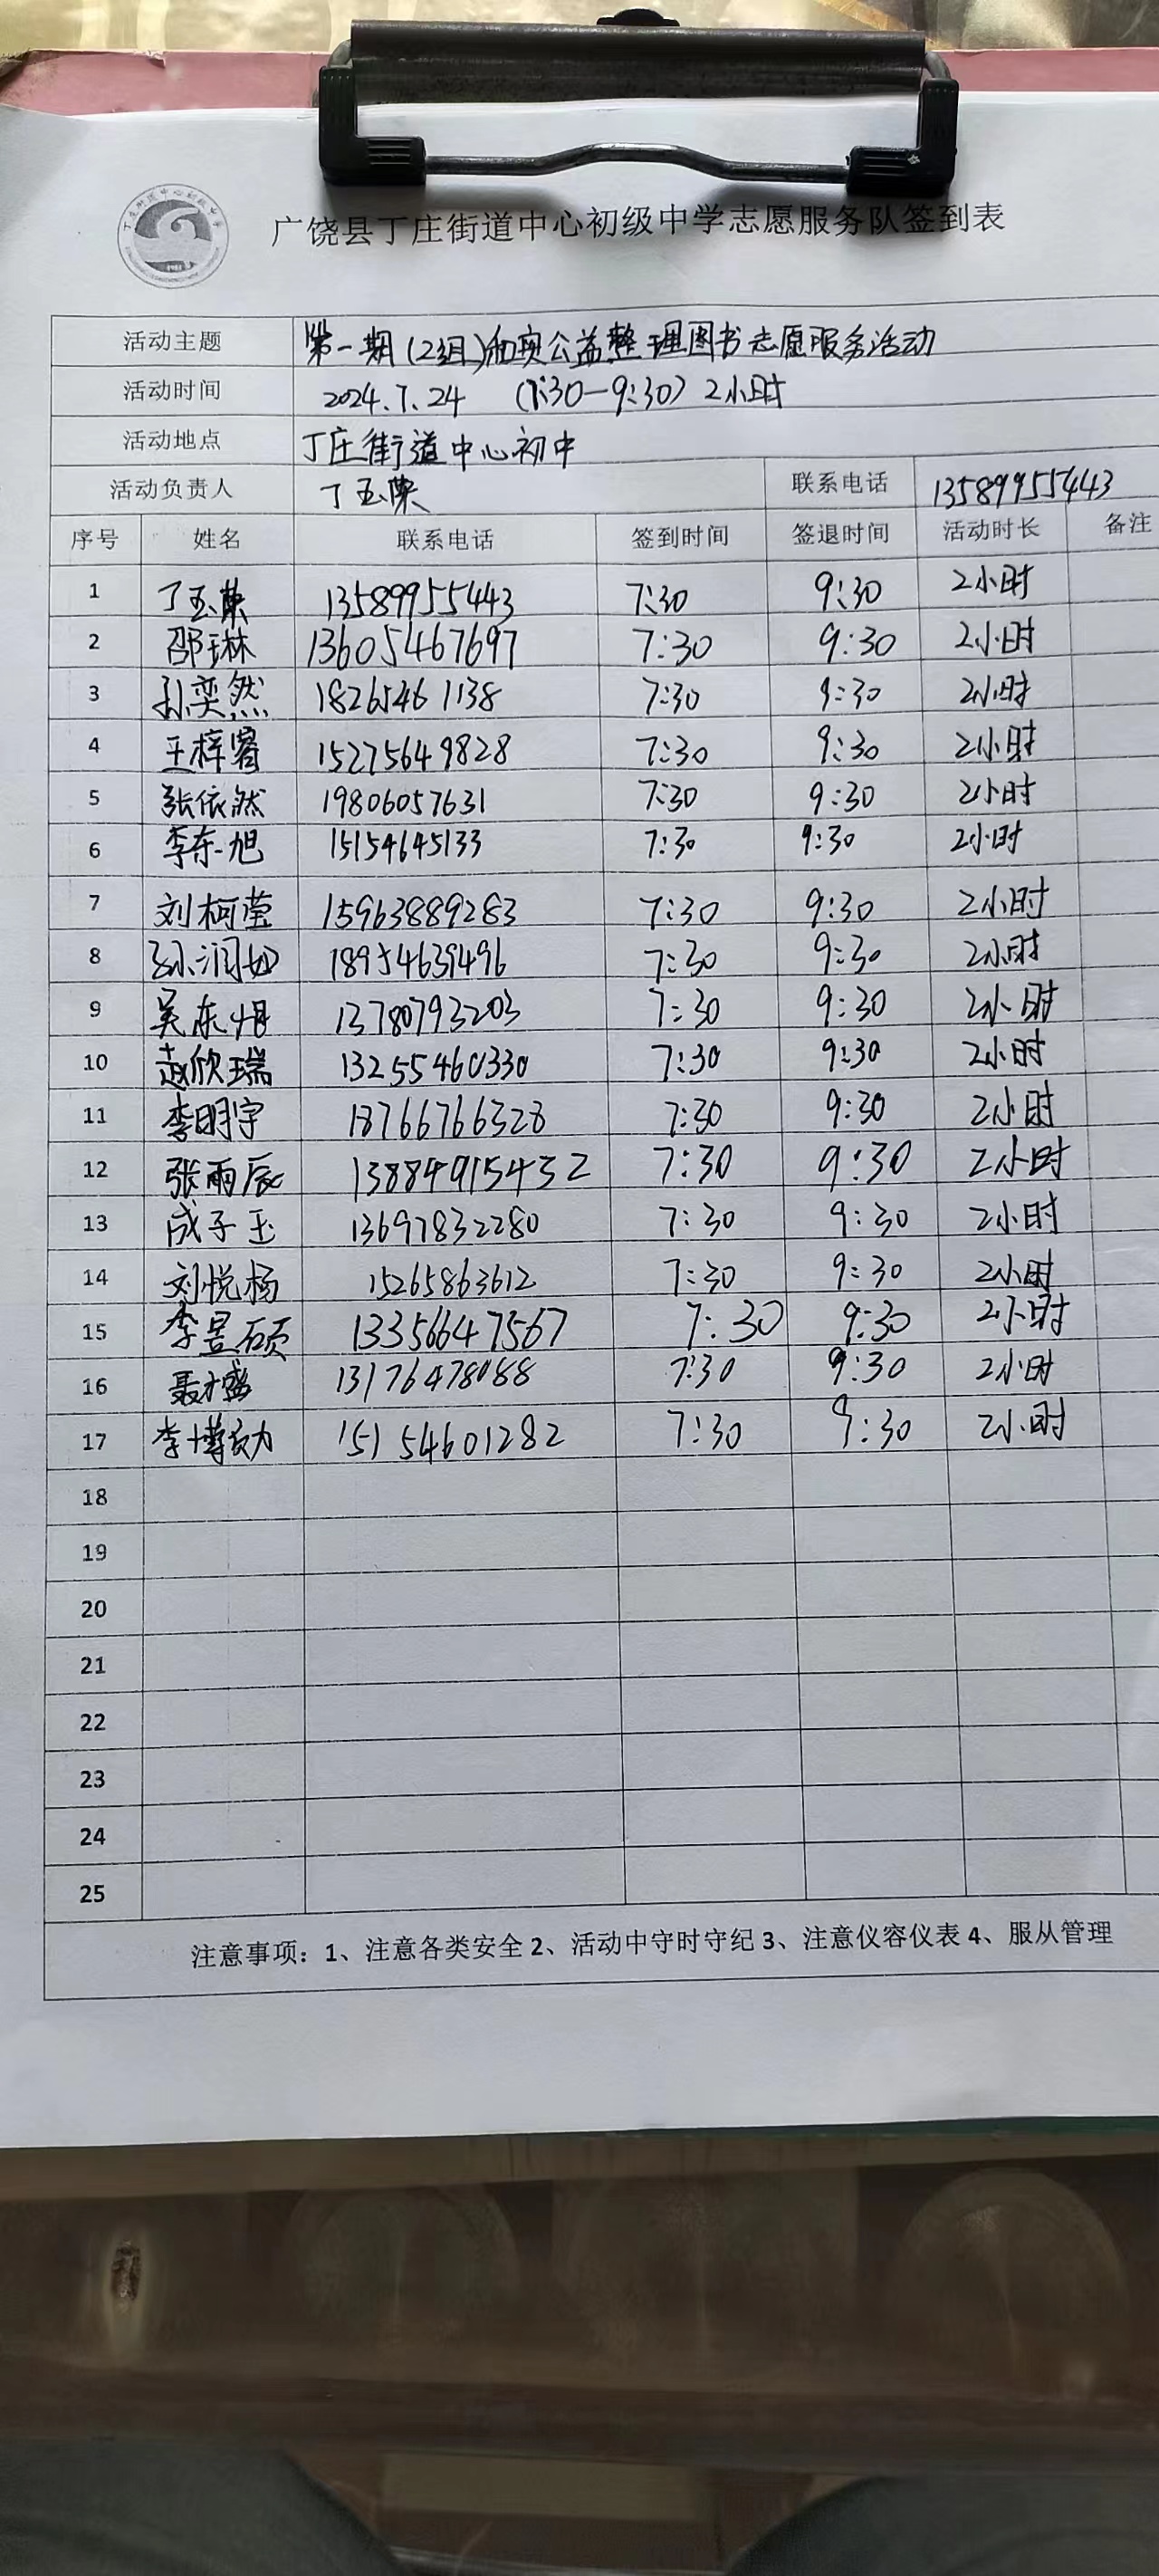 广饶县丁庄街道中心初级中学志愿服务队签到表
活动主题 第一期(2组)和美公益整理图书志愿服务活动
活动时间 2024.7.24 (7:30—9:30) 2小时
活动地点 丁庄街道中心初中
活动负责人 丁玉荣 联系电话 13589955443
序号 姓名 联系电话 签到时间 签退时间 活动时长 备注
1 丁玉荣 13589955443 7:30 9:30 2小时
2 邵琳 13605467697 7:30 9:30 2小时
3 孙奕然 18265461138 7:30 9:30 2小时
4 王梓睿 15275649828 7:30 9:30 2小时
5 张依然 19806057631 7:30 9:30 2小时
6 李东旭 15154645133 7:30 9:30 2小时
7 刘柯莹 15963889283 7:30 9:30 2小时
8 孙润如 18954639496 7:30 9:30 2小时
9 吴东 13780793203 7:30 9:30 2小时
10 赵欣瑞 13255460330 7:30 9:30 2小时
11 李明宇 18766766328 7:30 9:30 2小时
12 张雨辰 13884915432 7:30 9:30 2小时
13 成子玉 13697832280 7:30 9:30 2小时
14 刘悦杨 15265863612 7:30 9:30 2小时
15 李昱硕 13356647567 7:30 9:30 2小时
16 聂盛 13176478088 7:30 9:30 2小时
17 李博勋 15154601282 7:30 9:30 2小时
18
19
20
21
22
23
24
25
注意事项：1、注意各类安全 2、活动中守时守纪 3、注意仪容仪表 4、服从管理